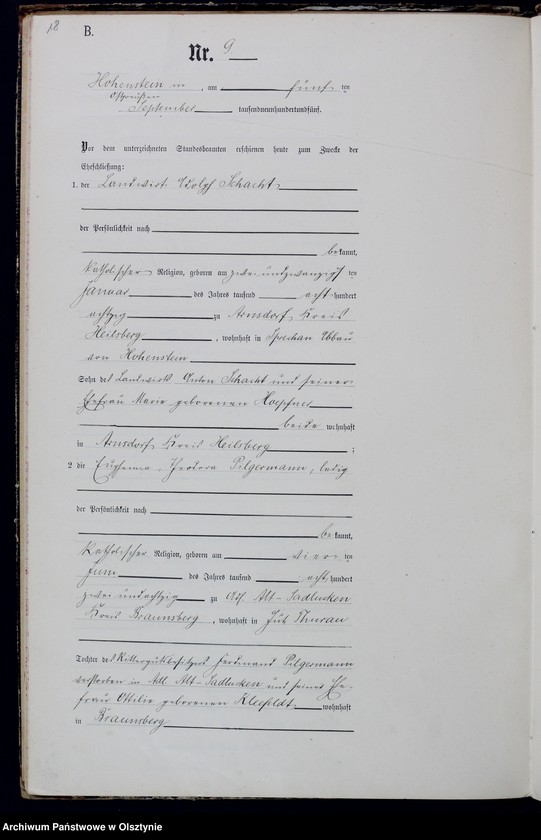 18
B.
Nr. 9
Hohenstein in, am fünf ten
Ostpreußen
September tausendneunhundertundfünf.
Vor dem unterzeichneten Standesbeamten erschienen heute zum Zwecke der
Eheschließung:
1. der Landwirt Adolf Schacht,
der Persönlichkeit nach
bekannt,
katholischer Religion, geboren am zweiundzwanzigs ten
Januar des Jahres tausend acht hundert
achtzig zu Arnsdorf, Kreis
Heilsberg, wohnhaft in Abbau
von Hohenstein
Sohn des Landwirts Anton Schacht und seiner
Ehefrau Marie geborenen Hoepfner
beide wohnhaft
in Arnsdorf, Kreis Heilsberg;
2 die Theodora Pilgermann, ledig
der Persönlichkeit nach
bekannt,
katholischer Religion, geboren am vier ten
Juni des Jahres tausend acht hundert
zweiundachtzig zu Alt-Sadlucken
Kreis Braunsberg, wohnhaft in Thurau
Tochter des Rittergutsbesitzers Ferdinand Pilgermann
verstorben in Adl. Alt-Sadlucken und seiner Ehe-
frau Ottilie geborenen Kleefeldt, wohnhaft
in Braunsberg
Archiwum Państwowe w Olsztynie